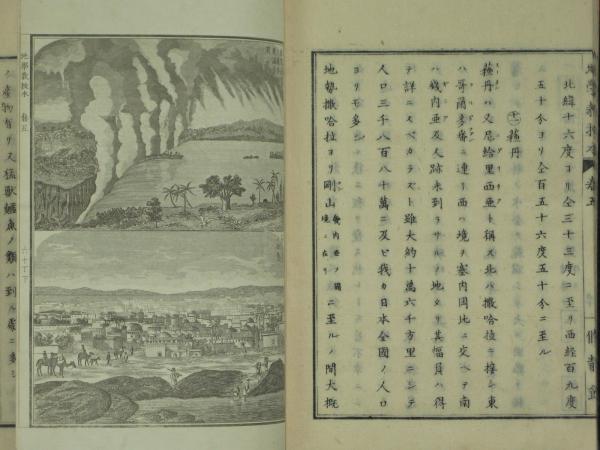 地學教授本
巻五
北緯十六度ヨリ仝三十三度ニ至リ西経百九度
五十分ヨリ仝百五十六度五十分ニ至ル
蘓丹
蘓丹ハ又尼給里西亜ト稱ス北ハ撒哈拉ヲ擁シ東
ハ哥爾多番ニ連リ西ハ境ヲ塞内岡比ニ交ヘテ南
ハ幾内亜及人跡未到ラサルノ地タリ其幅員ハ得
テ詳ニスベカラスト雖大約十萬六千方里ニシテ
人口三千八百八十萬ニ及ヒ我カ日本全國ノ人口
ヨリモ多シ
地勢撒哈拉ヨリ剛山幾内亜ノ國境ニ在リニ至ルノ間大概
地學教授本 巻五
六十丁下
猛獣鱷魚ノ類ハ到ル處ニ多シ